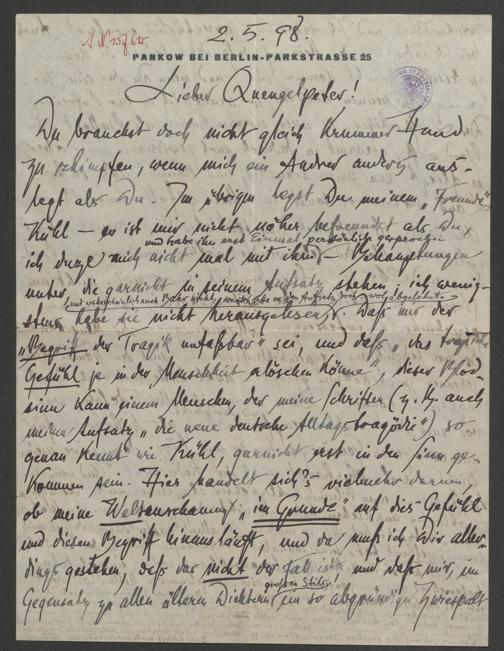 2. 5. 98.
PANKOW BEI BERLIN-PARKSTRASSE 25
Lieber Quengelpeter!
Du brauchst doch nicht gleich Krummer Hund
zu schimpfen, wenn mich ein Andrer anders aus-
legt als Du. Im übrigen legst Du meinem „Freunde“
Kühl — er ist mir nicht näher befreundet als Du,
und habe ihn erst Einmal persönlich gesprochen
ich duze mich nicht mal mit ihm — Behauptungen
unter, die garnicht in seinem Aufsatz stehen; ich wenig-
und wahrscheinlich auch Bahr nicht, sonst hätte er den Aufsatz wol abgelehnt
stens habe sie nicht herausgelesen. Daß mir der
„Begriff der Tragik unfaßbar“ sei, und daß „das tragische
Gefühl je in der Menschheit erlöschen könne“, dieser Blöd-
sinn kann einem Menschen, der meine Schriften (z. B. auch
meinen Aufsatz „die neue deutsche Alltagstragödie“) so
genau kennt wie Kühl, garnicht erst in den Sinn ge-
kommen sein. Hier handelt sich's vielmehr darum,
ob meine Weltanschauung „im Grunde“ auf dies Gefühl
und diesen Begriff hinausläuft, und da muß ich Dir aller-
dings gestehen, daß das nicht der Fall ist und daß mir, im
großen Stils
Gegensatz zu allen ältern Dichtern ein so abgründiger Zwiespalt